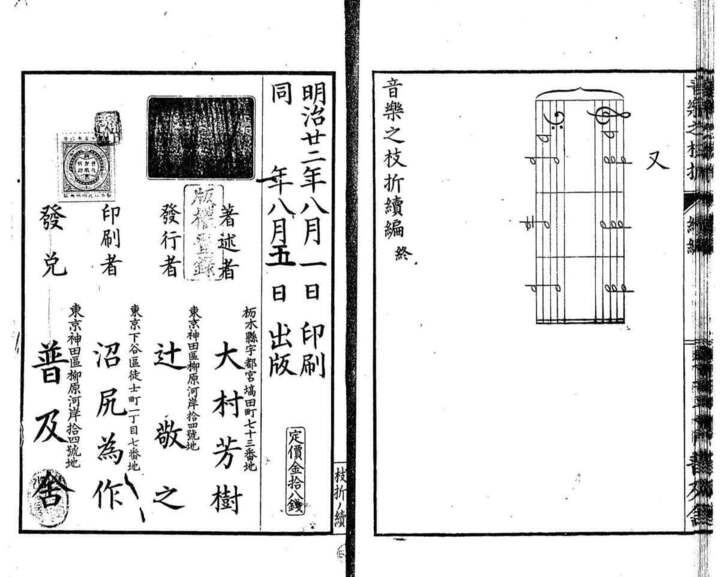 又
音樂之枝折續編 終
枝折ノ續
明治廿二年八月一日 印刷
同 年八月五日 出版
定價金拾八錢
版權登録
栃木縣宇都宮塙田町七十三番地
著述者 大村芳樹
東京神田區柳原河岸拾四號地
發行者 辻敬之
東京下谷區徒士町一丁目七番地
印刷者 沼尻為作
東京神田區柳原河岸拾四號地
發兌 普及舎